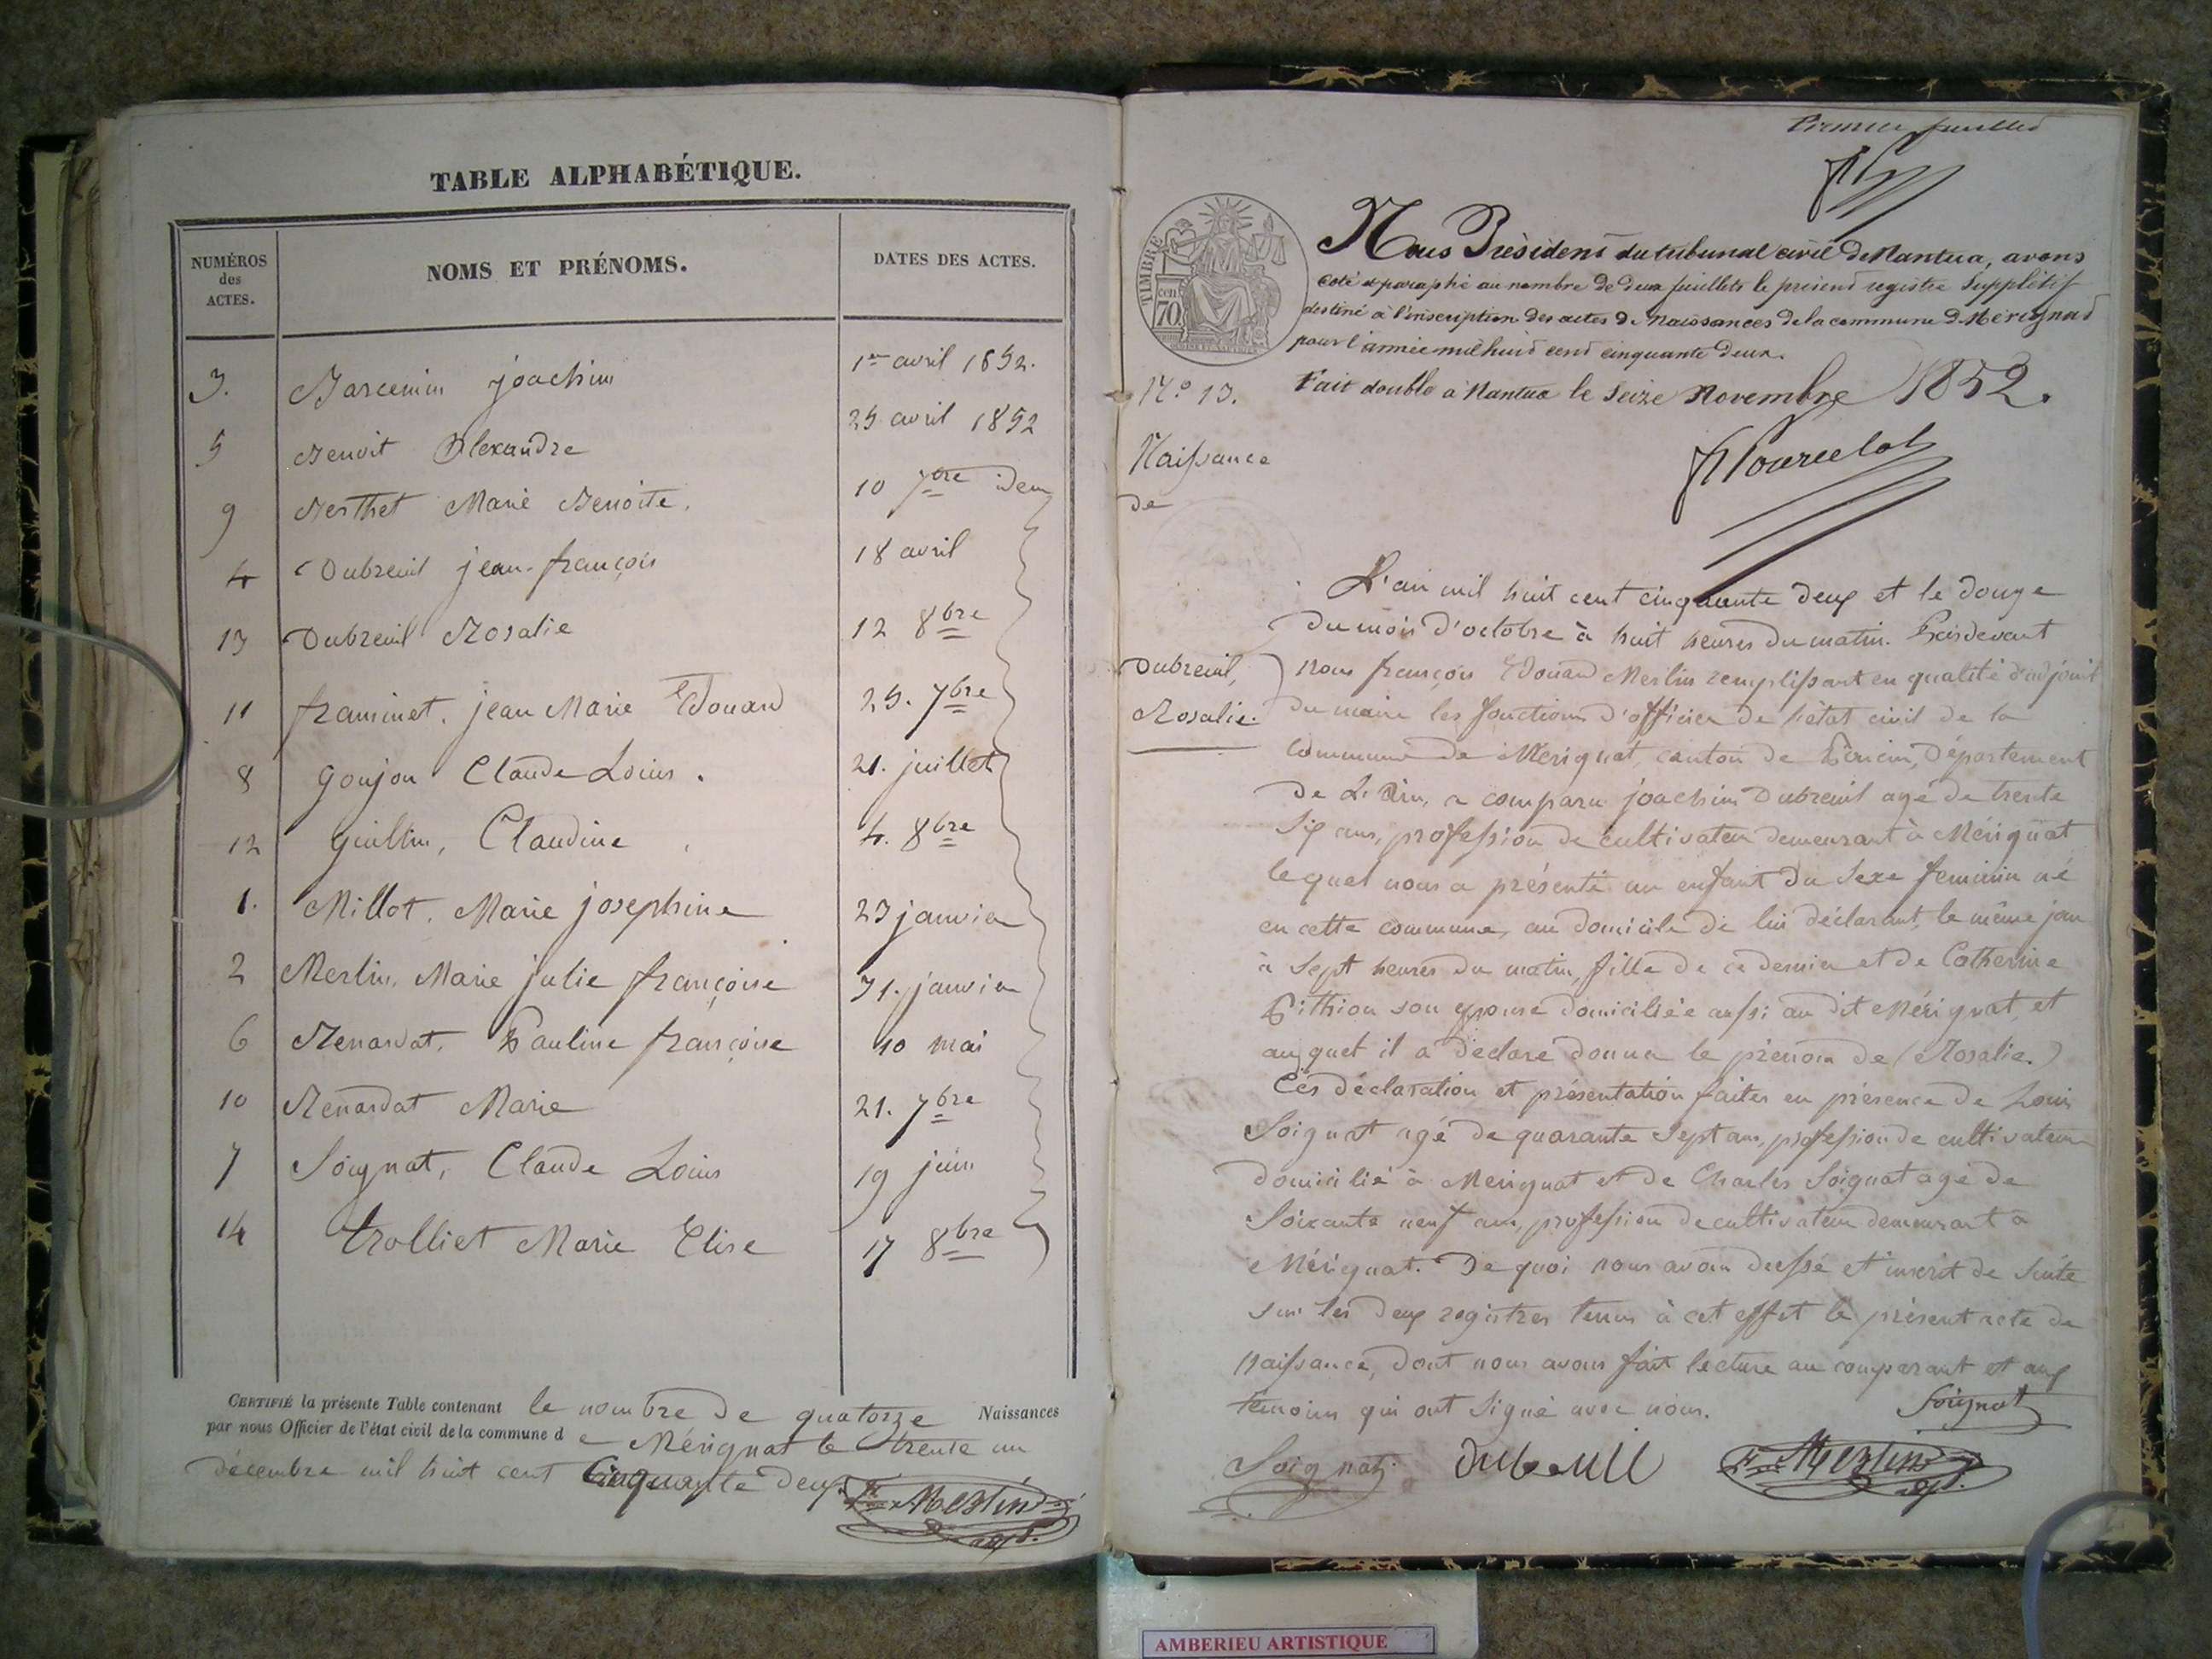 TABLE ALPHABÉTIQUE.
NUMÉROS des ACTES.
NOMS ET PRÉNOMS.
DATES DES ACTES.
3. Barcenim joachim 1er avril 1852.
5 Benoit Alexandre 25 avril 1852
9 Berthet Marie Benoite. 10 7bre idem
4 Dubreuil jean-françois 18 avril
13 Dubreuil Rosalie 12 8bre
11 framinet. jean Marie Edouard 25. 7bre
8 Goujon Claude Louis. 21. juillet
12 Guillin, Claudine 4. 8bre
1. Millot. Marie josephine 23 janvier
2 Merlin. Marie julie françoise 31. janvier
6 Renardat. Pauline françoise 10 mai
10 Renardat Marie 21. 7bre
7 Soignat, Claude Louis 19 juin
14 trolliet Marie Elise 17 8bre
CERTIFIÉ la présente Table contenant le nombre de quatorze Naissances
par nous Officier de l'état civil de la commune de Mérignat le trente un
décembre mil huit cent Cinquante deux.
Merlin
adjt.
Premier feuillet
TIMBRE
70 cent
Nous Président du tribunal civil de Nantua, avons
coté et paraphé au nombre de deux feuillets le présent registre Supplétif
destiné à l'inscription des actes de Naissances de la commune de Mérignat
pour l'année mil huit cent cinquante deux.
Fait double à Nantua le Seize Novembre 1852.
Pourcelot
No 13.
Naissance
de
Dubreuil,
Rosalie.
L'an mil huit cent cinquante deux et le douze
du mois d'octobre à huit heures du matin. Pardevant
nous françois Edouard Merlin remplissant en qualité d'adjoint
du maire les fonctions d'officier de l'état civil de la
Commune de Merignat, canton de Poncin, Département
de L'Ain, a comparu joachim Dubreuil agé de trente
Six ans, profession de cultivateur demeurant à Mérignat
lequel nous a présenté un enfant du Sexe feminin né
en cette commune, au domicile de lui déclarant, le même jour
à Sept heures du matin, fille de ce dernier et de Catherine
Pithion son epouse domiciliée aussi au dit Mérignat, et
auquel il a declaré donner le prénom de (Rosalie.)
Ces déclaration et présentation faites en présence de Louis
Soignat agé de quarante Sept ans, profession de cultivateur
domicilié à Merignat et de Charles Soignat agé de
Soixante neuf ans, profession de cultivateur demeurant à
Mérignat. De quoi nous avons dressé et inscrit de Suite
sur les deux registres tenus à cet effet le présent acte de
Naissance, dont nous avons fait lecture au comparant et aux
témoins qui ont Signé avec nous.
Soignat
Soignat
dubreuil
Merlin
adjt.
AMBERIEU ARTISTIQUE